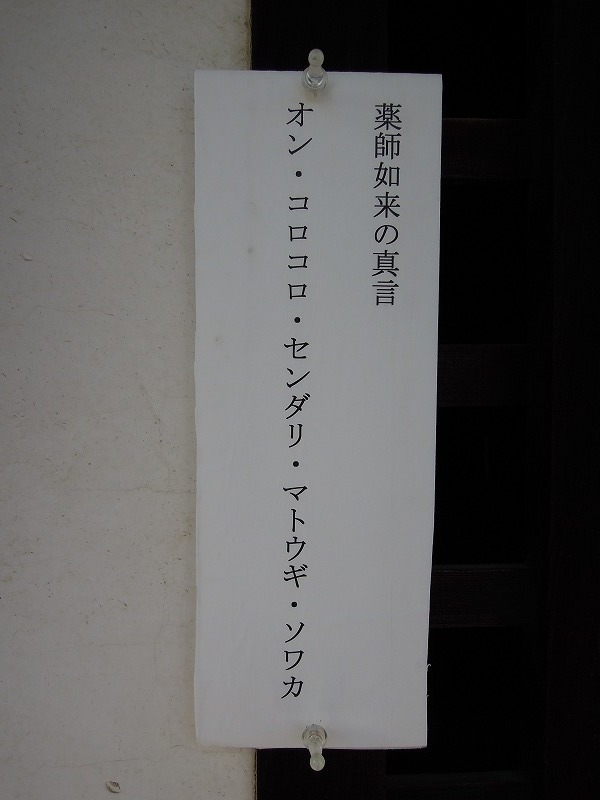 薬師如来の真言
オン・コロコロ・センダリ・マトウギ・ソワカ